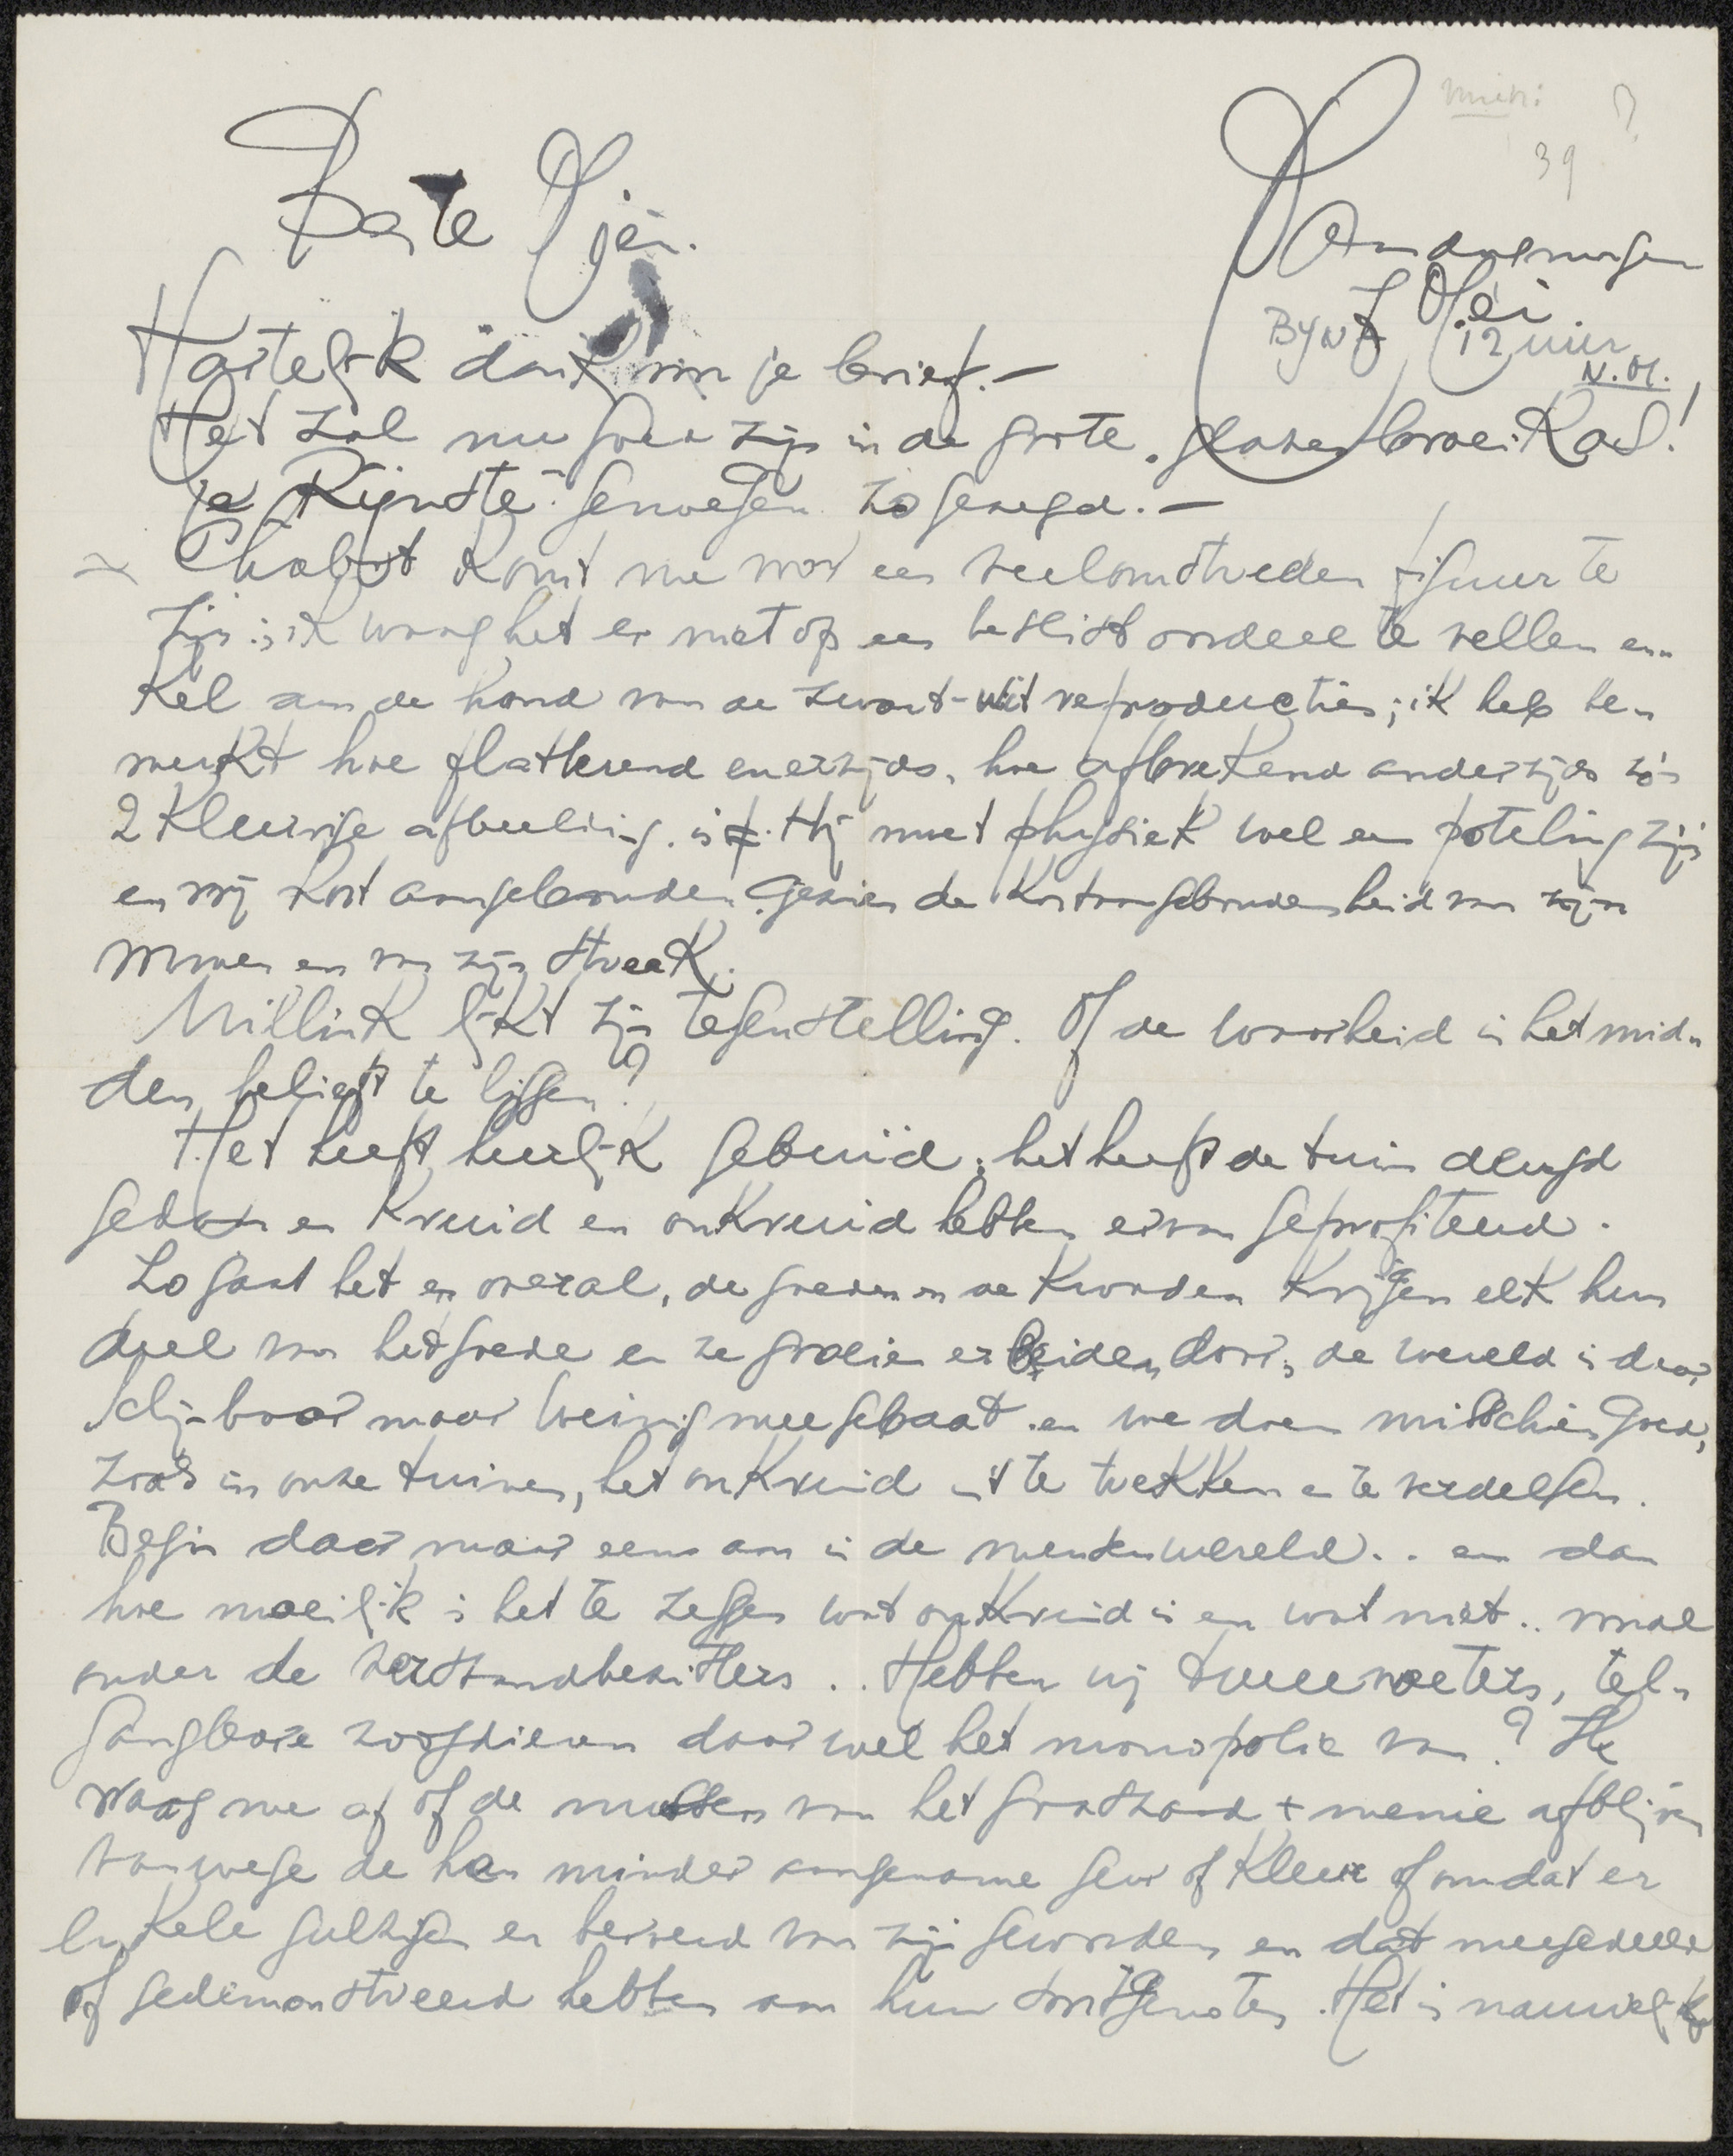 Beste Ojen.
Donderdagmorgen
Mei
39 ?
BIJNA 12 uur
N.M.
Hartelijk dank voor je brief. —
Het zal nu goed zijn in de grote, glazen broeikas!
je "Rijndte" genoegen zogezegd. —
~ Chabot komt me voor een veelomstreden figuur te
zijn; ik waag het er niet op een beslist oordeel te vellen en-
kel aan de hand van de zwart-wit reproducties; ik heb be-
merkt hoe flatterend enerzijds, hoe afbrekend anderzijds zo'n
2 kleurige afbeelding is. Hij moet physiek wel een poteling zijn
en vrij kort aangebonden, gezien de kortaangebondenheid van zijn
vormen en van zijn streek.
Millink lijkt zijn tegenstelling. Of de waarheid in het mid-
den belieft te liggen?
Het heeft heerlijk gebuiïd; het heeft de tuin deugd
gedaan en kruid en onkruid hebben ervan geprofiteerd.
Zo gaat het en overal, de goeden en de kwaden krijgen elk hun
deel van het goede en ze groeien er beiden door; de wereld is daar
schijnbaar maar weinig mee gebaat en we doen misschien goed,
zoals in onze tuinen, het onkruid uit te trekken en te verdelgen.
Begin daar maar eens aan in de mensenwereld.. en dan
hoe moeilijk is het te zeggen wat onkruid is en wat niet.. vooral
onder de verstandbezitters.. Hebben wij tweevoeters, tel-
gangbare zoogdieren daar wel het monopolie van? Ik
vraag me af of de mussen van het graszaad + menie afblijven
vanwege de hen minder aangename geur of kleur of omdat er
enkele gulzigen en beroerd van zijn geworden en dat meegedeeld
of gedemonstreerd hebben aan hun soortgenoten. Het is nauwelijks